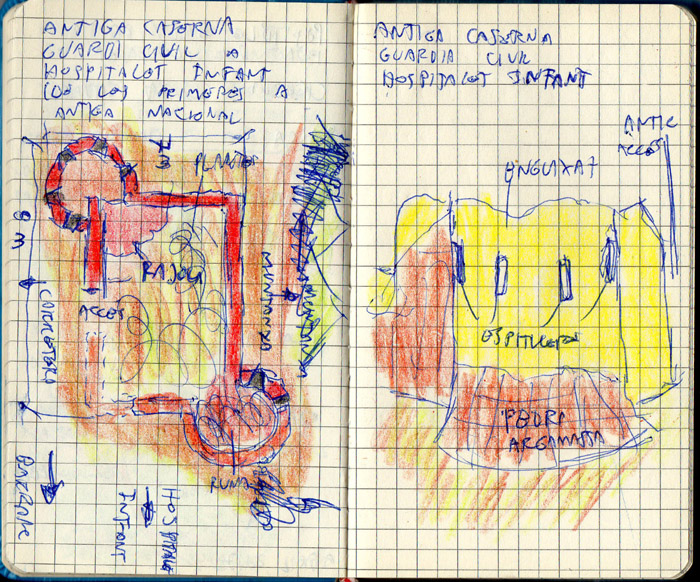 ANTIGA CASERNA
GUARDI CIVIL A
HOSPITALET INFANT
PRIMERES A
ANTIGA NACIONAL
7 m
PLANTES
8 m
RAJOL
MUNTANYA
ACCES
CARRETERA
RUNA
BARRANC
HOSPITALET
INFANT
ANTIGA CASERNA
GUARDIA CIVIL
HOSPITALET INFANT
ANTIC
ACCES
ENGUIXAT
PEDRA
ARGAMASSA